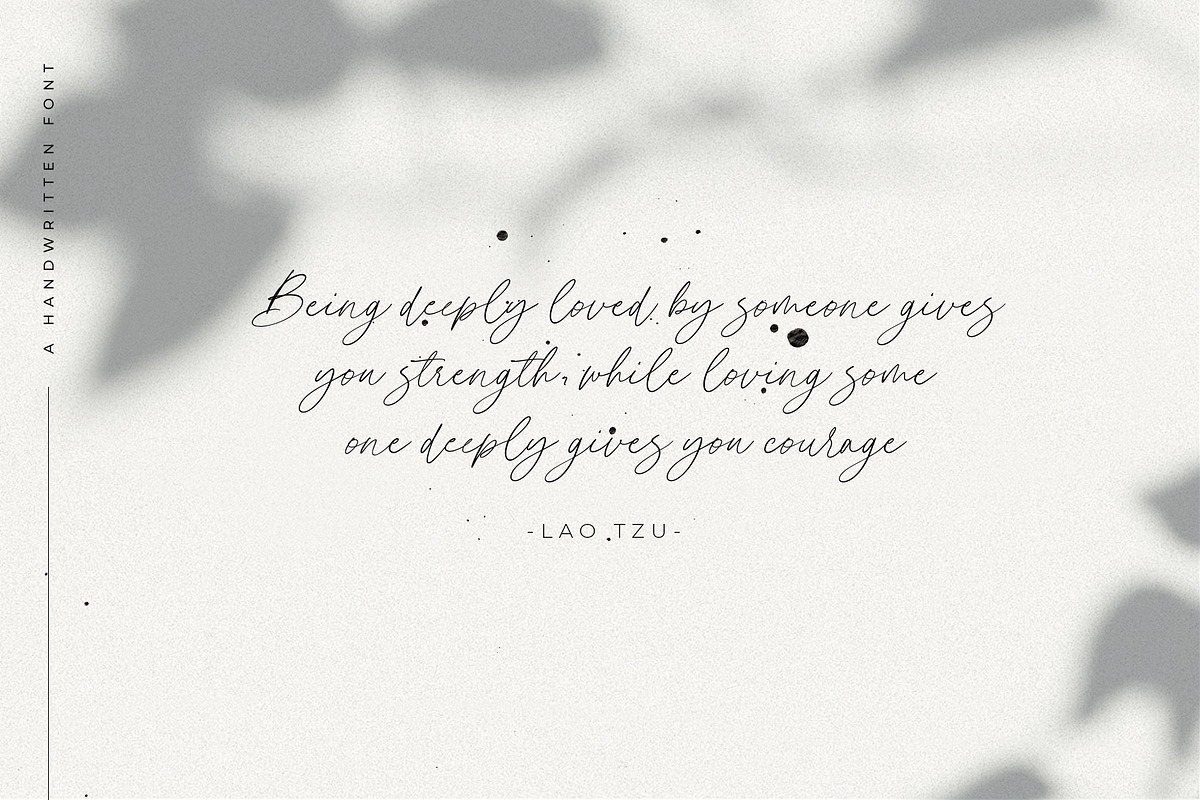 A HANDWRITTEN FONT
Being deeply loved by someone gives
you strength, while loving some
one deeply gives you courage
-LAO TZU-